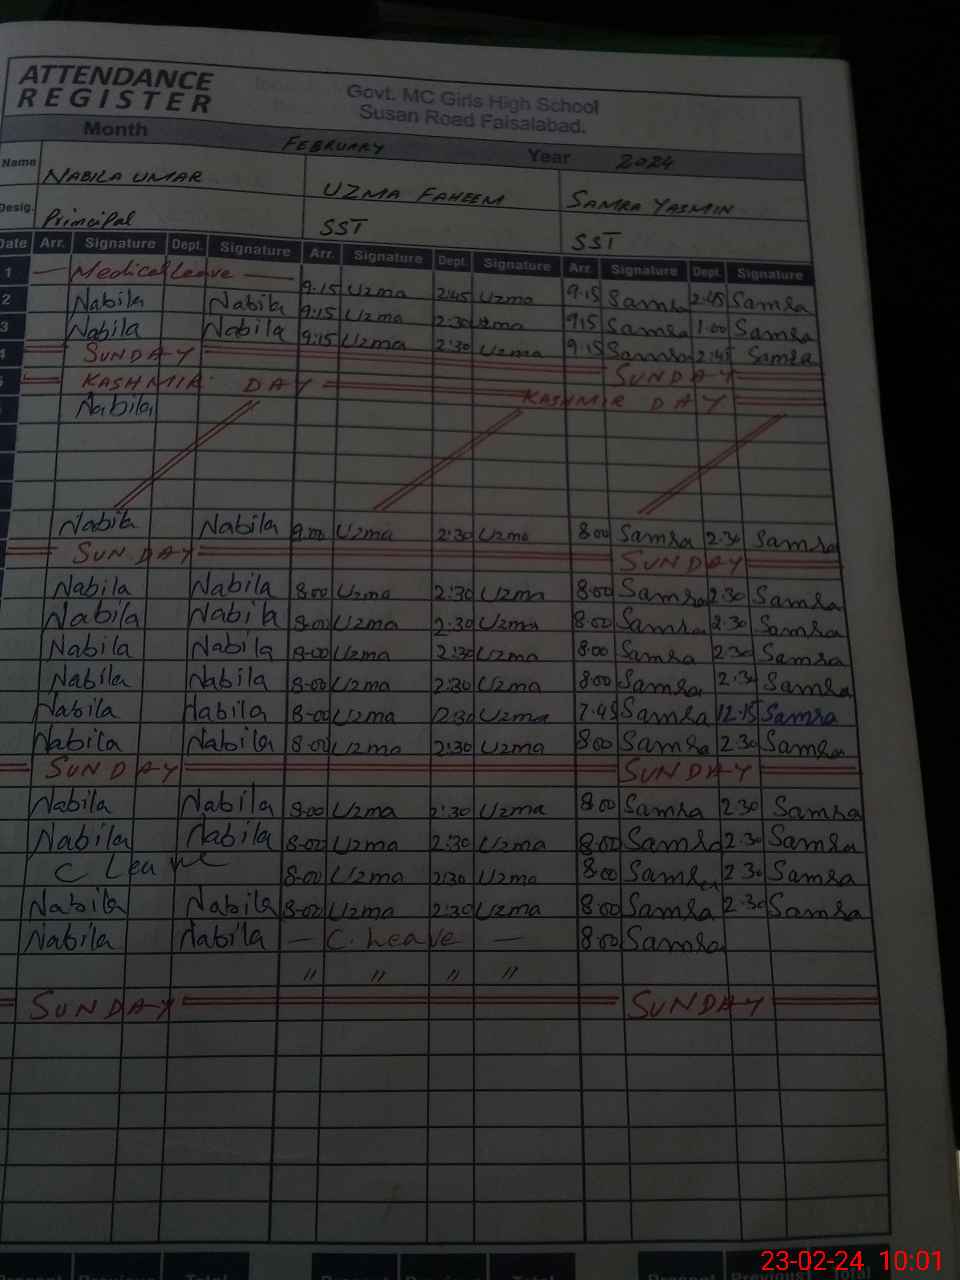 ATTENDANCE
REGISTER
Govt. MC Girls High School
Susan Road Faisalabad.
Month FEBRUARY Year 2024
Name NABILA UMAR UZMA FAHEEM SAMRA YASMIN
Desig. Principal SST SST
Date Arr. Signature Dept. Signature Arr. Signature Dept. Signature Arr. Signature Dept. Signature
1 — Medical Leave — 9:15 Uzma 2:45 Uzma 9:15 Samra 2:45 Samra
2 Nabila Nabila 9:15 Uzma 2:30 Uzma 9:15 Samra 1:00 Samra
3 Nabila Nabila 9:15 Uzma 2:30 Uzma 9:15 Samra 2:45 Samra
4 SUNDAY SUNDAY
KASHMIR DAY KASHMIR DAY
Nabila
Nabila Nabila 9:00 Uzma 2:30 Uzma 8:00 Samra 2:30 Samra
SUNDAY SUNDAY
Nabila Nabila 8:00 Uzma 2:30 Uzma 8:00 Samra 2:30 Samra
Nabila Nabila 8:00 Uzma 2:30 Uzma 8:00 Samra 2:30 Samra
Nabila Nabila 8:00 Uzma 2:30 Uzma 8:00 Samra 2:30 Samra
Nabila Nabila 8:00 Uzma 2:30 Uzma 8:00 Samra 2:30 Samra
Nabila Nabila 8:00 Uzma 2:30 Uzma 7:45 Samra 12:15 Samra
Nabila Nabila 8:00 Uzma 2:30 Uzma 8:00 Samra 2:30 Samra
SUNDAY SUNDAY
Nabila Nabila 8:00 Uzma 2:30 Uzma 8:00 Samra 2:30 Samra
Nabila Nabila 8:00 Uzma 2:30 Uzma 8:00 Samra 2:30 Samra
C Leave 8:00 Uzma 2:30 Uzma 8:00 Samra 2:30 Samra
Nabila Nabila 8:00 Uzma 2:30 Uzma 8:00 Samra 2:30 Samra
Nabila Nabila — C. Leave — 8:00 Samra
" " " "
SUNDAY SUNDAY
23-02-24 10:01